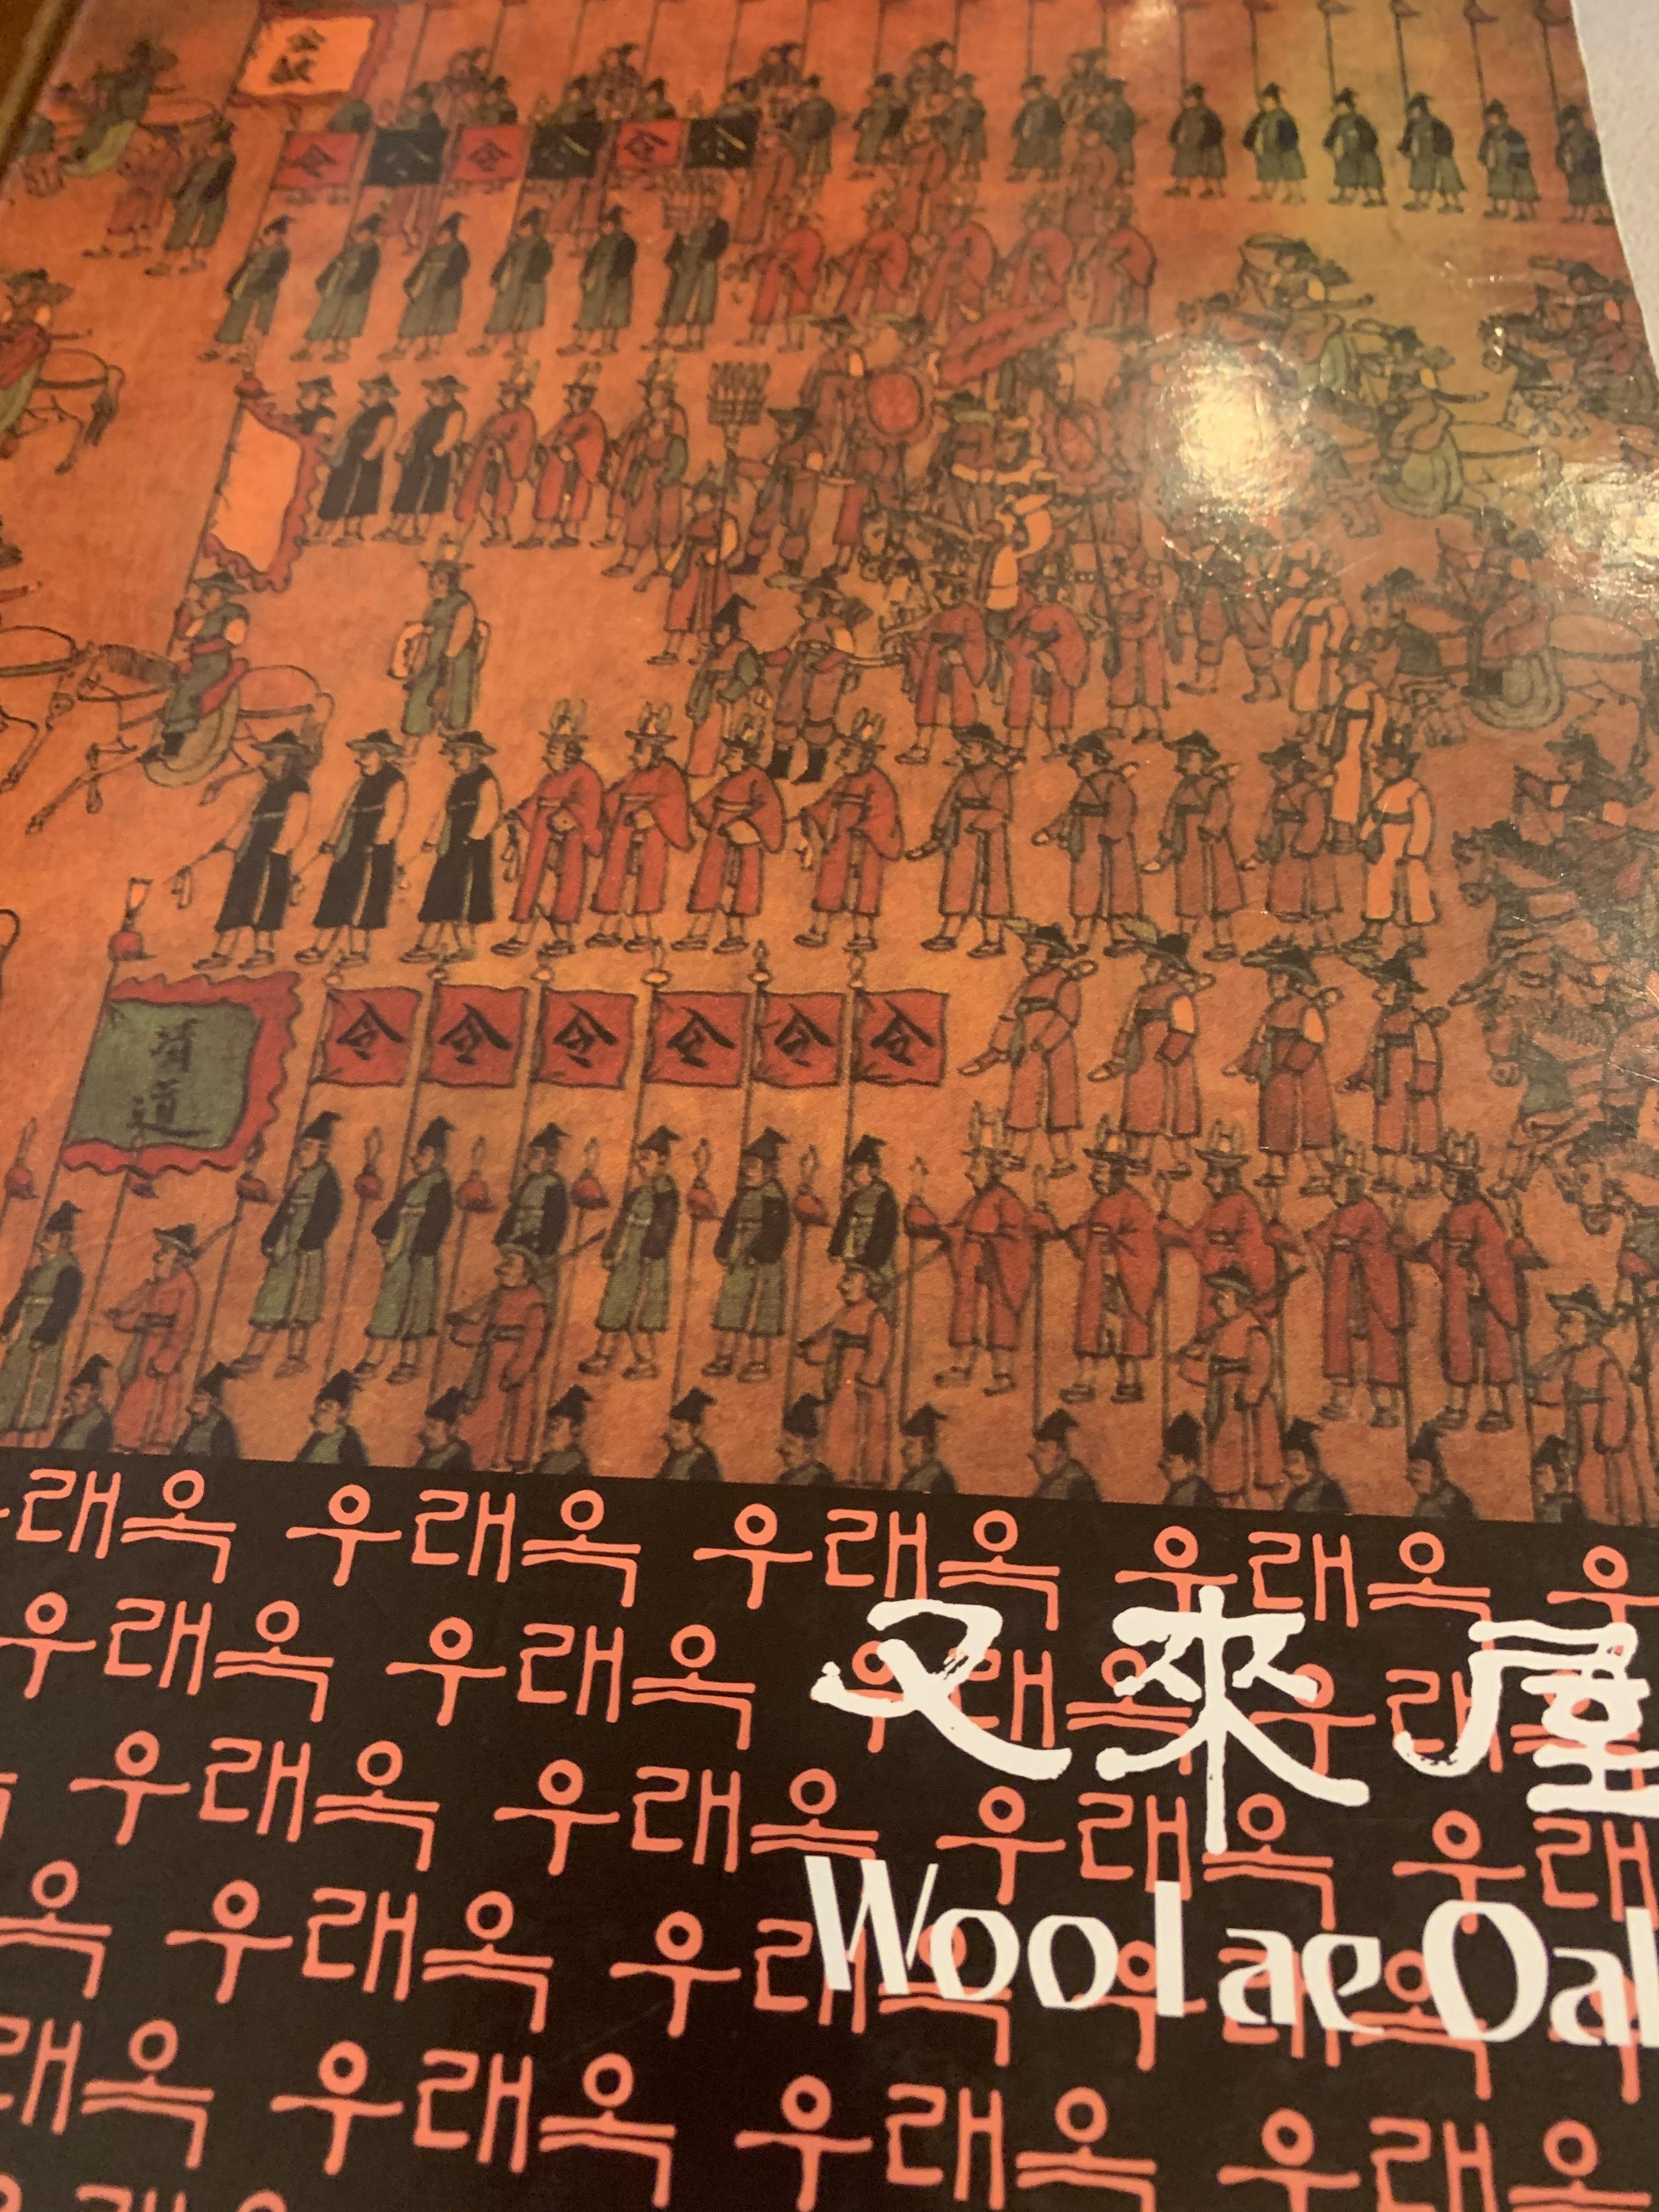 令 令 令 令 令 令
令 令 令 令 令 令
管
道
래옥 우래옥 우래옥 우래옥 우
우래옥 우래옥 우래옥 우래옥
又來屋
우래옥 우래옥 우래옥 우래
Woo lae Oak
옥 우래옥 우래옥 우래옥
래옥 우래옥 우래옥 우래옥